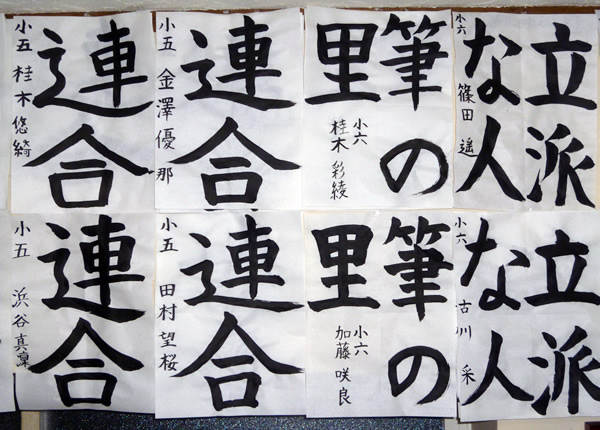 連合
小五 桂木悠綺
連合
小五 金澤優那
筆の
里
小六
桂木彩綾
立派
な人
小六
篠田遥
連合
小五 浜谷真凜
連合
小五 田村望桜
筆の
里
小六
加藤咲良
立派
な人
小六
古川采